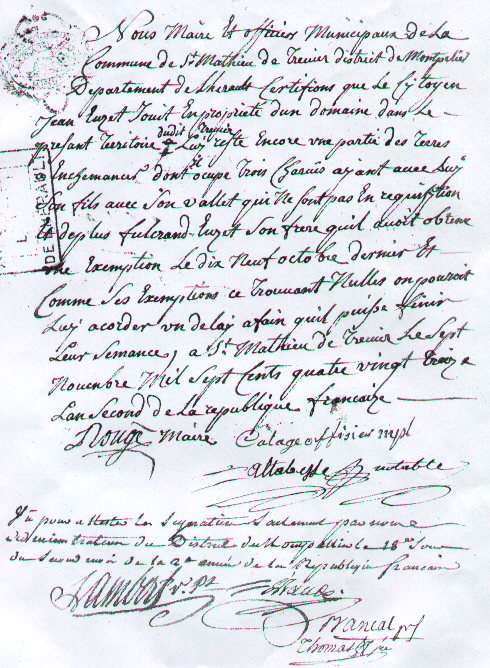 Nous Maire Et officiers Municipaux de La
Commune de St Mathieu de Trevier district de Montpelier
Departement de Lherault Certifions que Le Cytoyen
Jean Euzet Jouit En propriete dun domaine dans Le
presant Territoire dudit Trevier Luy reste Encore une partie des Terres
Ensemancer dont il ocupe Trois Charuës ayant avec Luy
Son fils avec Son vallet qui Ne sont pas En requisition
Et deplus fulcrand Euzet Son frere quil avoit obtenu
une Exemption Le dix Neuf octobre dernier Et
Comme Ses Exemptions ce Trouvant Nulles on pouroit
Luy acorder un delay afain quil puisse finir
Leur Semance, a St Mathieu de Trevier Le Sept
Novembre Mil Sept Cents quatre vingt Treize
Lan Second de La republique francaize
Rouge Maire Calage offisier mpl
notable
Vu pour attester la Signature
administrateurs du District de Montpellier le 18
du Second mois de la 2e année de la République francaise
Lambert
Brancal
Thomas
L